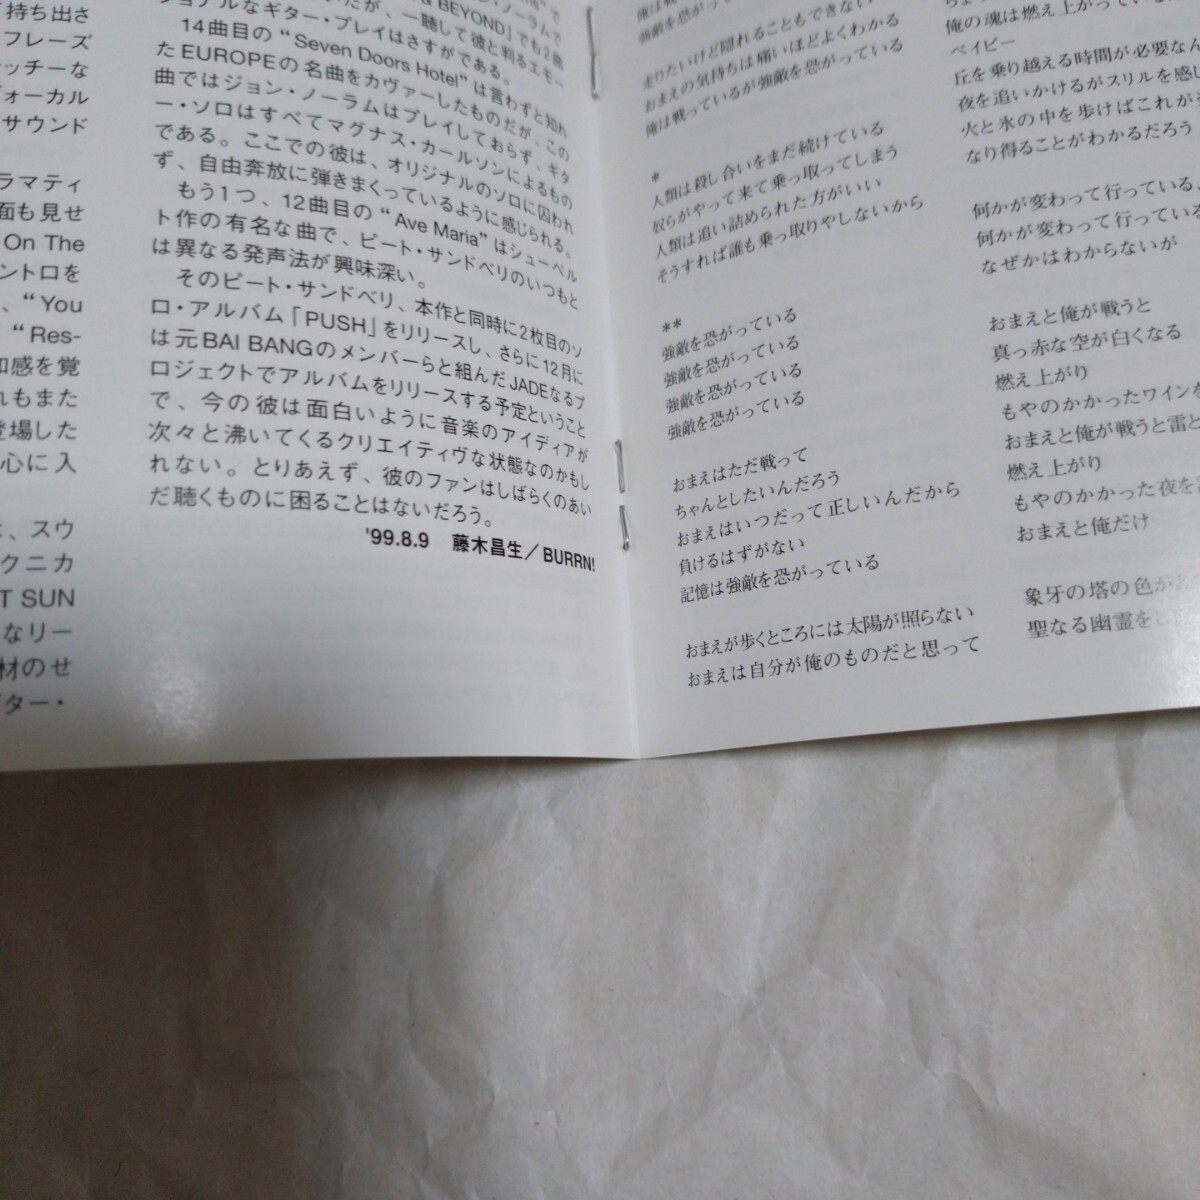 持ち出さ
フレーズ
ッチーな
ォーカル
サウンド
ラマティ
面も見せ
On The
ントロを
、“You
“Res-
和感を覚
れもまた
登場した
心に入
、スウ
クニカ
T SUN
なリー
材のせ
ター・
& BEYOND」でも2曲
だが、一聴して彼と判るエモー
ショナルなギター・プレイはさすがである。
14曲目の“Seven Doors Hotel”は言わずと知れ
たEUROPEの名曲をカヴァーしたものだが、この
曲ではジョン・ノーラムはプレイしておらず、ギタ
ー・ソロはすべてマグナス・カールソンによるもの
である。ここでの彼は、オリジナルのソロに囚われ
ず、自由奔放に弾きまくっているように感じられる。
もう1つ、12曲目の“Ave Maria”はシューベル
ト作の有名な曲で、ピート・サンドベリのいつもと
は異なる発声法が興味深い。
そのピート・サンドベリ、本作と同時に2枚目のソ
ロ・アルバム「PUSH」をリリースし、さらに12月に
は元BAI BANGのメンバーらと組んだJADEなるプ
ロジェクトでアルバムをリリースする予定ということ
で、今の彼は面白いように音楽のアイディアが
次々と沸いてくるクリエイティヴな状態なのかもし
れない。とりあえず、彼のファンはしばらくのあい
だ聴くものに困ることはないだろう。
'99.8.9 藤木昌生／BURRN!
俺は戦
強敵を恐が
走りたいけど隠れることもできない
おまえの気持ちは痛いほどよくわかる
俺は戦っているが強敵を恐がっている
*
人類は殺し合いをまだ続けている
奴らがやって来て乗っ取ってしまう
人類は追い詰められた方がいい
そうすれば誰も乗っ取りやしないから
**
強敵を恐がっている
強敵を恐がっている
強敵を恐がっている
強敵を恐がっている
おまえはただ戦って
ちゃんとしたいんだろう
おまえはいつだって正しいんだから
負けるはずがない
記憶は強敵を恐がっている
おまえが歩くところには太陽が照らない
おまえは自分が俺のものだと思って
俺の魂は燃え上がっている
ベイビー
丘を乗り越える時間が必要なん
夜を追いかけるがスリルを感じ
火と氷の中を歩けばこれが
なり得ることがわかるだろう
何かが変わって行っている
何かが変わって行っている
なぜかはわからないが
おまえと俺が戦うと
真っ赤な空が白くなる
燃え上がり
もやのかかったワインを
おまえと俺が戦うと雷と
燃え上がり
もやのかかった夜を
おまえと俺だけ
象牙の塔の色が
聖なる幽霊を